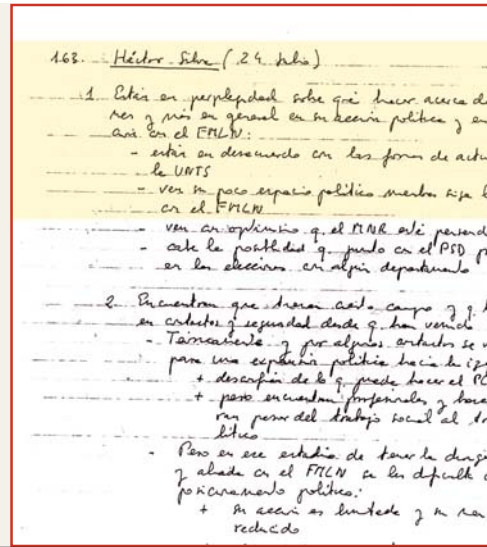 163. Héctor Silva (24 Julio)
1 Están en perplejidad sobre qué hacer acerca de
nes y más en general en su acción política y en
con el FMLN:
- están en desacuerdo con las formas de actu
la UNTS
- ven su poco espacio político mientras siga l
con el FMLN
- ven con optimismo q. el MNR esté pensando
- cabe la posibilidad q. junto con el PSD p
en las elecciones en algún departamento
2 Encuentran que tienen cierto campo y q. h
en contactos y seguridad desde q. han venido
- Teóricamente y por algunos contactos se v
para una expansión política hacia la izq
+ desconfían de lo q. puede hacer el P
+ pero encuentran profesionales y
ran pasar del trabajo social al tra
lítico
- Pero en ese estadio de tener la
y aliada con el FMLN se les dificulta
posicionamiento político:
+ su acción es limitada y su
reducido